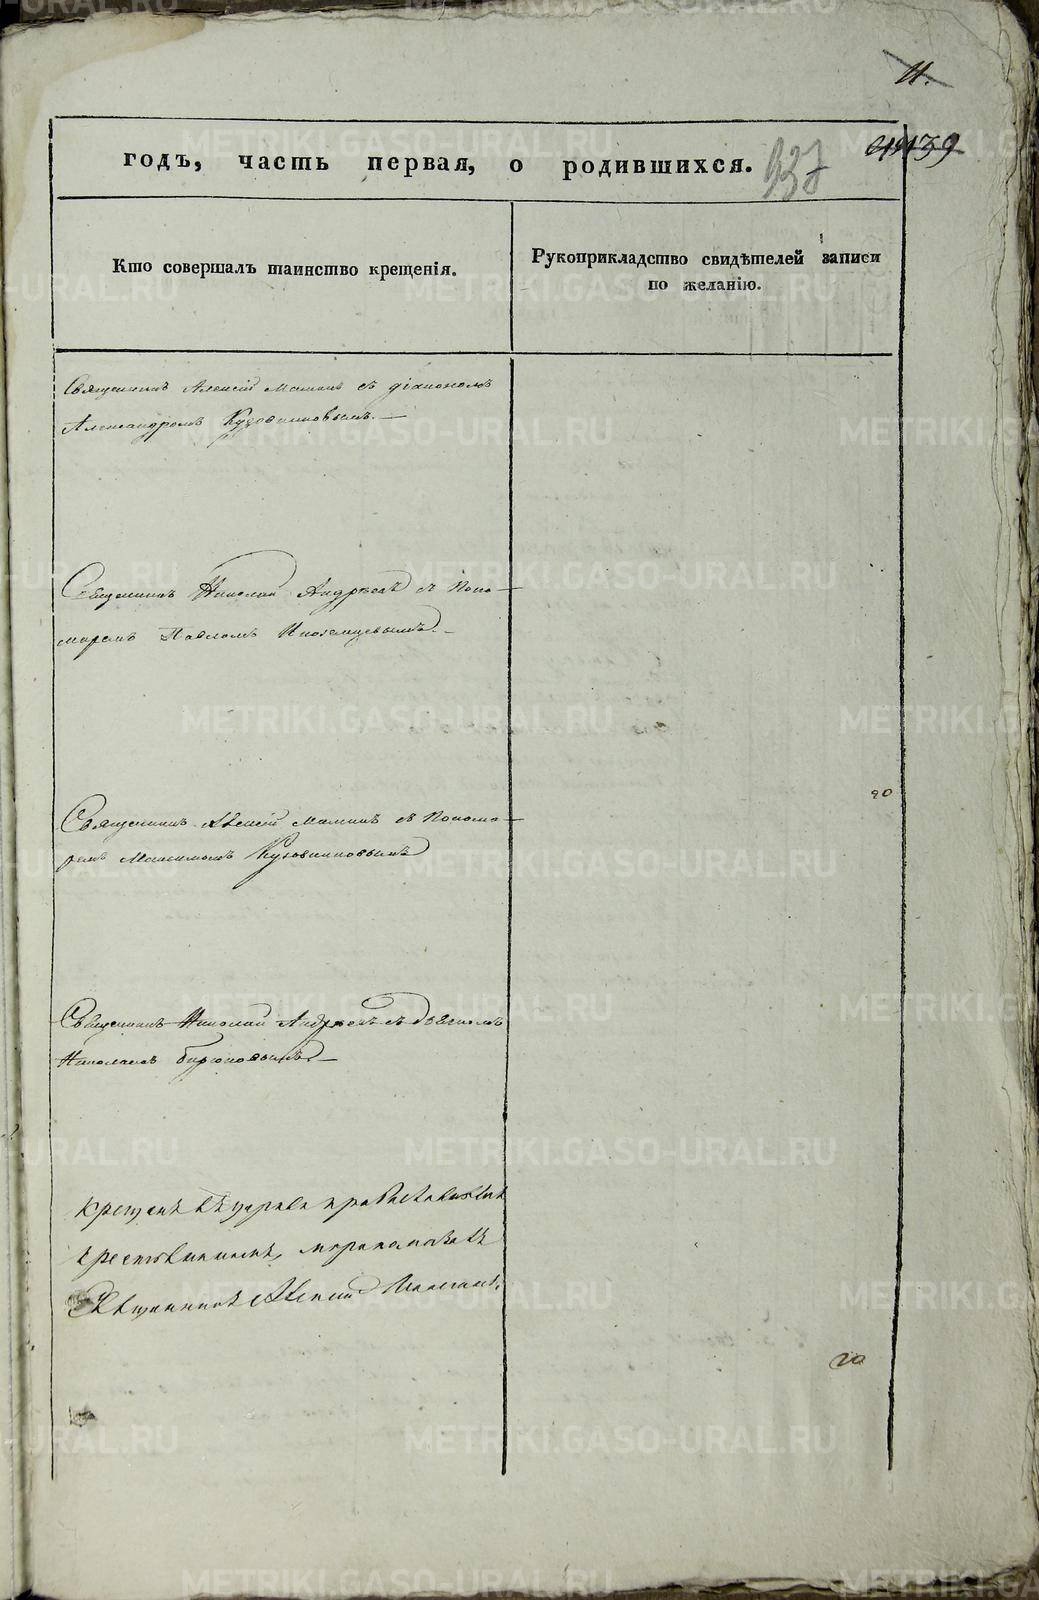 11.
годъ, часть первая, о родившихся. 937
139
Кто совершалъ таинство крещенія.
Рукоприкладство свидѣтелей записи
по желанію.
Священникъ Алексій Маминъ съ діакономъ
Александромъ Кузовниковымъ.
Священникъ Николай Андреевъ съ Поно-
маремъ Павломъ Иноземцевымъ.
Священникъ Алексій Маминъ съ Понома-
ремъ Максимомъ Кузовниковымъ
20
Священникъ Николай Андреевъ съ дьячкомъ
Николаемъ Бирюковымъ
Крещенъ
Священникъ Алексій Маминъ.
20
METRIKI.GASO-URAL.RU